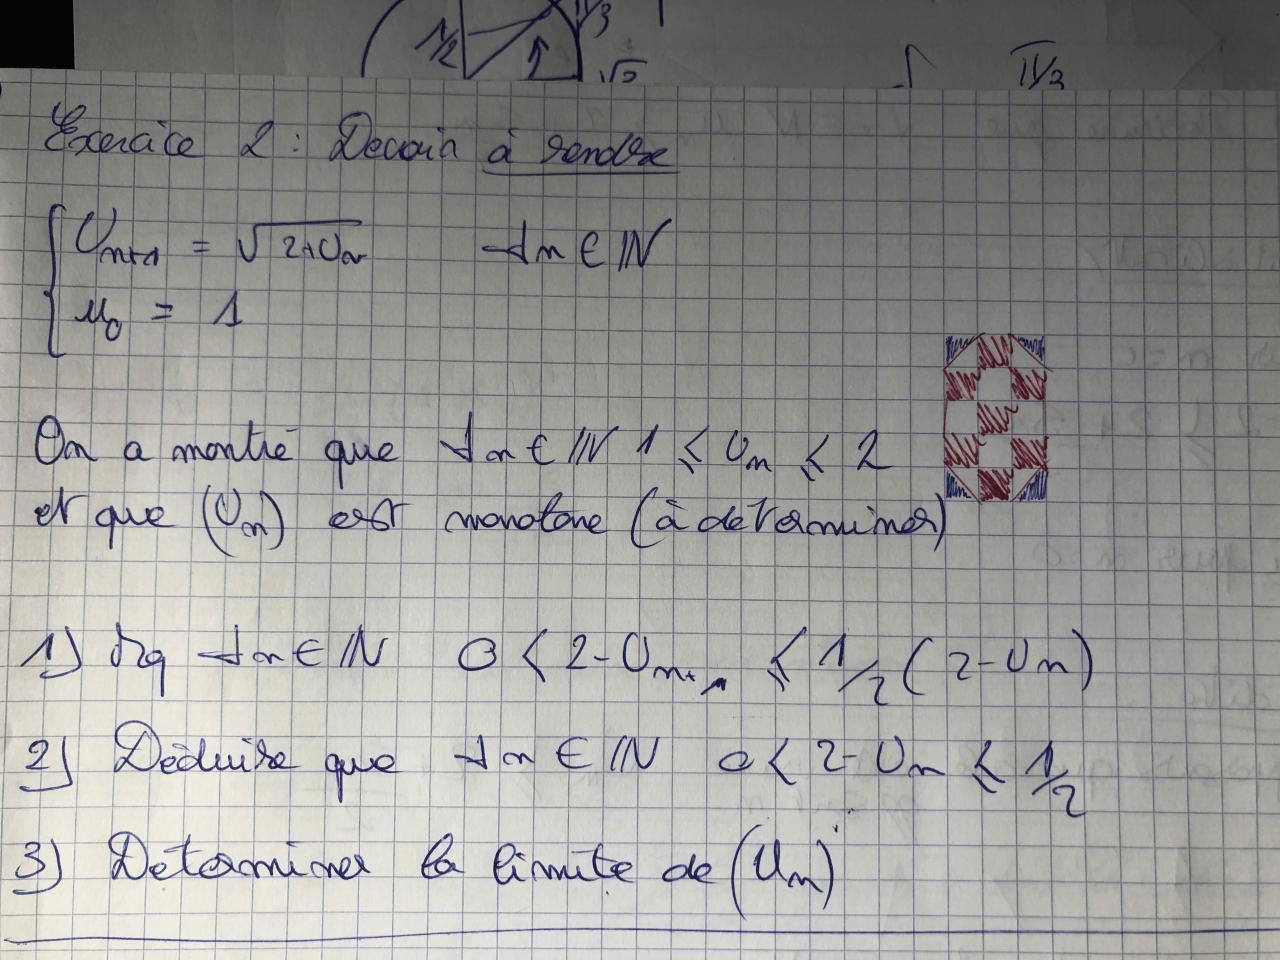 1/2
π/3
√2
π/2
Exercice 2 : Devoir à rendre
U_{n+1} = √(2+U_n) ∀n ∈ ℕ
u_0 = 1
On a montré que ∀n ∈ ℕ 1 ≤ U_n ≤ 2
et que (U_n) est monotone (à determiner)
1) Mq ∀n ∈ ℕ 0 < 2-U_{n+1} ≤ 1/2 (2-U_n)
2) Déduire que ∀n ∈ ℕ 0 < 2-U_n ≤ 1/2
3) Determiner la limite de (U_n)